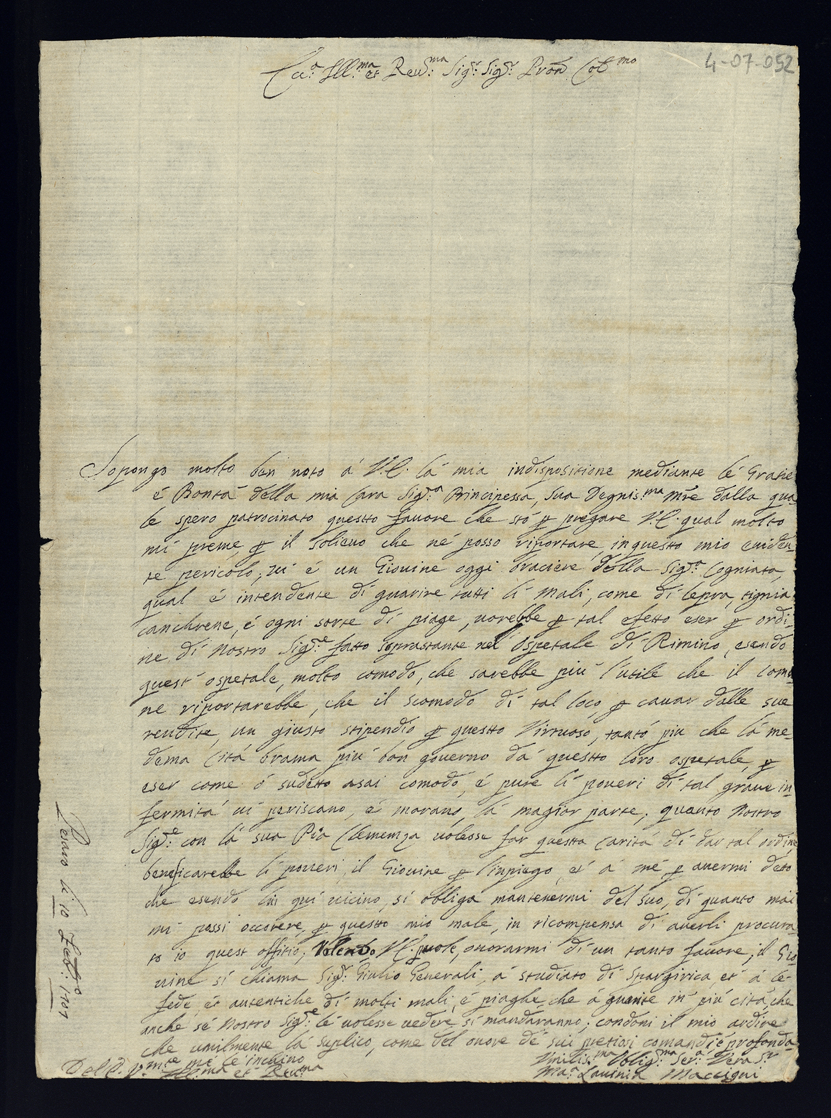 4-07-052
Ecc.ª Ill.ma et Reu.ma Sig.r Sig.r Pron. Col.mo
Sopongo molto ben noto á V.E. la mia indispositione mediante le Gratie
é Bontá della mia Cara Sig.ra Principessa, Sua Degnis.ma m.re dalla qua-
le spero patrocinato questto fauore che stó p pregare V.E. qual molto
mi preme p il solieuo che né posso riportare, in questo mio euiden-
te pericolo, ui é un Giouine oggi braciere della Sig.ra Cogniata,
qual é intendente di guarire tutti li mali, come di lepra, tignia
canchrene, é ogni sorte di piage, uorebbe p tal efetto eser p ordi-
ne di Nostro Sig.re fatto soprastante nel Ospetale di Rimino, esendo
quest' ospetale, molto comodo, che sarebbe piú l'utile che il Comu-
ne riportarebbe, che il scomodo di tal loco p cauar dalle sue
rendite, un giusto stipendio p questto Virtuoso, tantó piu che lá me-
dema Citá brama piú bon gouerno dá questto loro ospetale, p
eser come ó sudetto asai comodo, é pure li poueri di tal graue in-
fermitá ui periscano é morano lá magior parte, quanto Nostro
Sig.re con lá sua Pia Clemenza uolesse far questa caritá di dar tal ordine
beneficarebbe li poueri, il Giouine p l'inpiego, et á mé p auermi detto
che esendo lui qui uicino, si obliga mantenermi del suo, di quanto mai
mi possi occorere, p questto mio male, in ricompensa di auerli procura-
to io quest offitio, Volendo V.E. puole, onorarmi di un tanto fauore; il Gio-
uine si chiama Sig.r Giulio Generali, á studiato di Spargirica, et á le
fede, et autentiche di molti mali, é piaghe, che á guarite in piú citá, che
anche sé Nostro Sig.re le uolesse uedere si mandaranno; condoni il mio ardire
che umilmente la suplico, come del onore de suoi pretiosi comandi é profonda-
m.te mé le inchino
Del E. V. Ill.ma et Reu.ma
Umilis.ma Oblig.ma Ser.a Vera
Ma.ª Lauinia Maccigni
Pesaro li 10 Feb. 1701